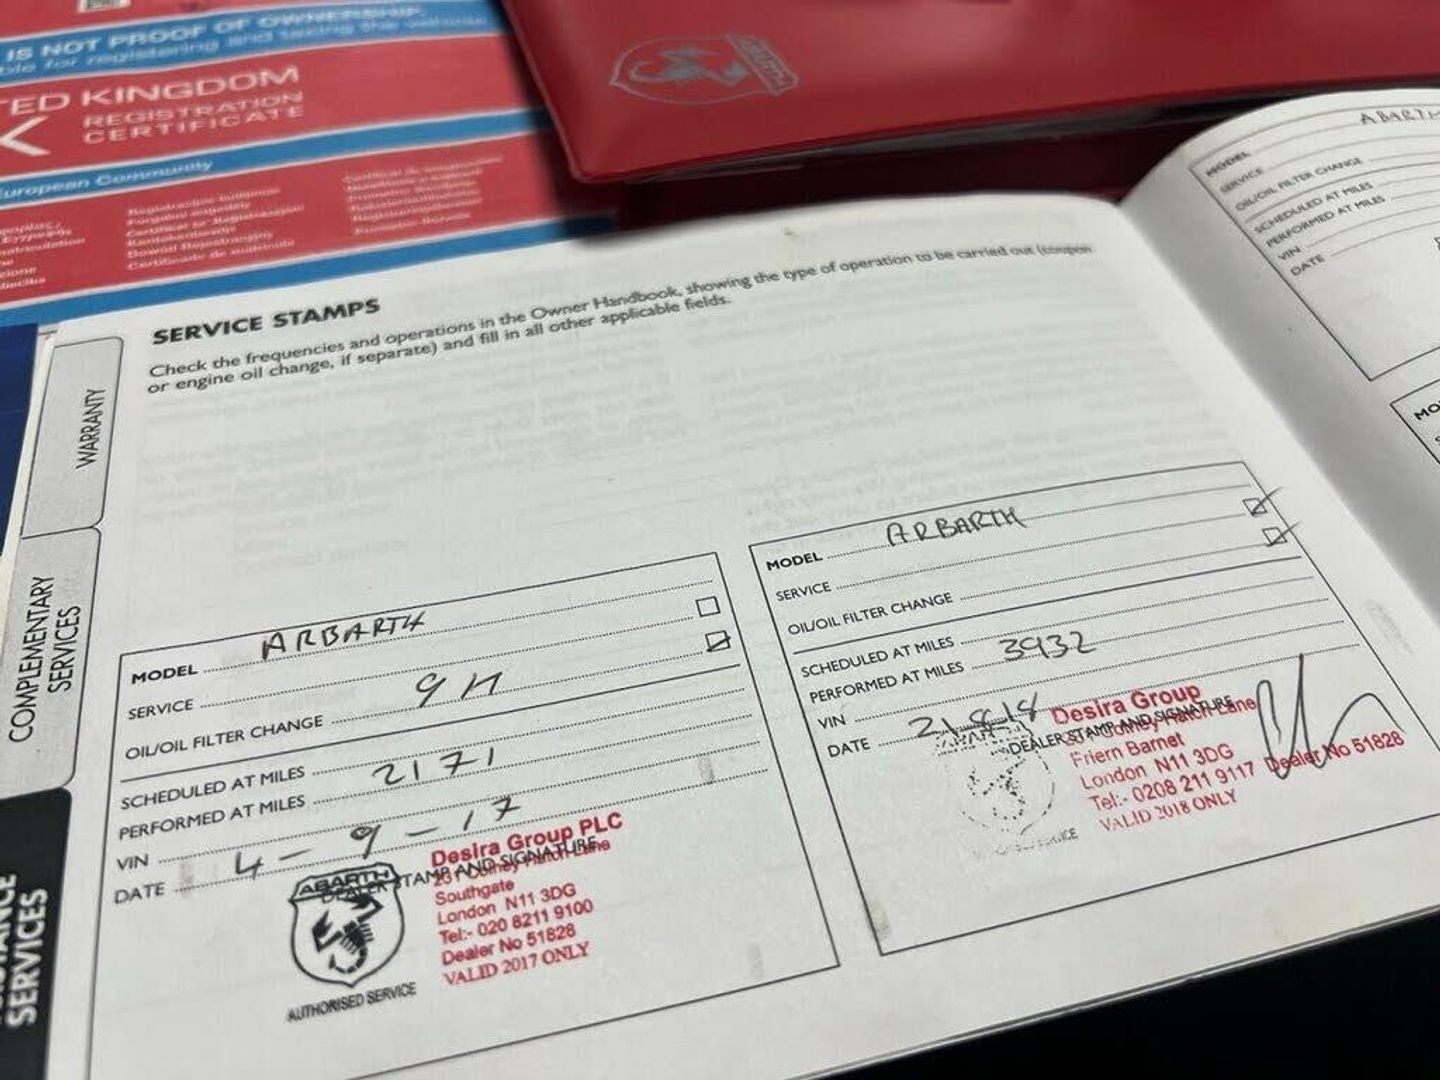 IS NOT PROOF OF OWNERSHIP
ble for registering and taxing the vehicle
TED KINGDOM
REGISTRATION
CERTIFICATE
European Community
ABARTH
SERVICE STAMPS
Check the frequencies and operations in the Owner Handbook, showing the type of operation to be carried out (coupon
or engine oil change, if separate) and fill in all other applicable fields.
WARRANTY
COMPLEMENTARY
SERVICES
SERVICES
MODEL ARBARTH
SERVICE
OIL/OIL FILTER CHANGE 9M
SCHEDULED AT MILES
PERFORMED AT MILES 2171
VIN
DATE 4-9-17
DEALER STAMP AND SIGNATURE
ABARTH
AUTHORISED SERVICE
Desira Group PLC
Southgate
London N11 3DG
Tel:- 020 8211 9100
Dealer No 51828
VALID 2017 ONLY
MODEL ARBARTH
SERVICE
OIL/OIL FILTER CHANGE
SCHEDULED AT MILES
PERFORMED AT MILES 3932
VIN
DATE
DEALER STAMP AND SIGNATURE
Desira Group
Friern Barnet
London N11 3DG
Tel:- 0208 211 9117 Dealer No 51828
VALID 2018 ONLY
MODEL ABARTH
SERVICE
OIL/OIL FILTER CHANGE
SCHEDULED AT MILES
PERFORMED AT MILES
VIN
DATE